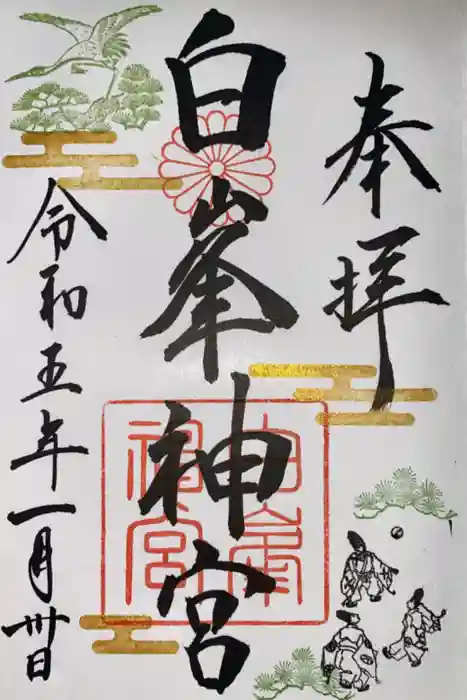 奉拝
白峯神宮
白峯神宮
令和五年一月卅日